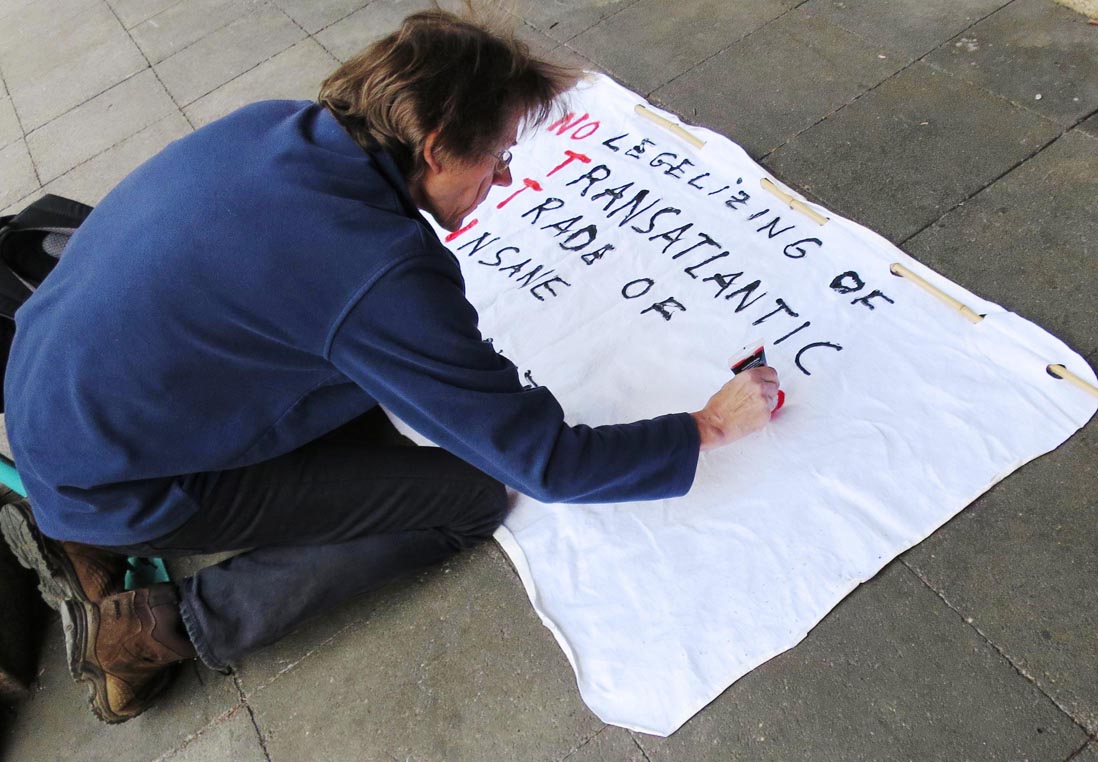 NO LEGELiZING OF
TRANSATLANTIC
TRADE OF
INSANE